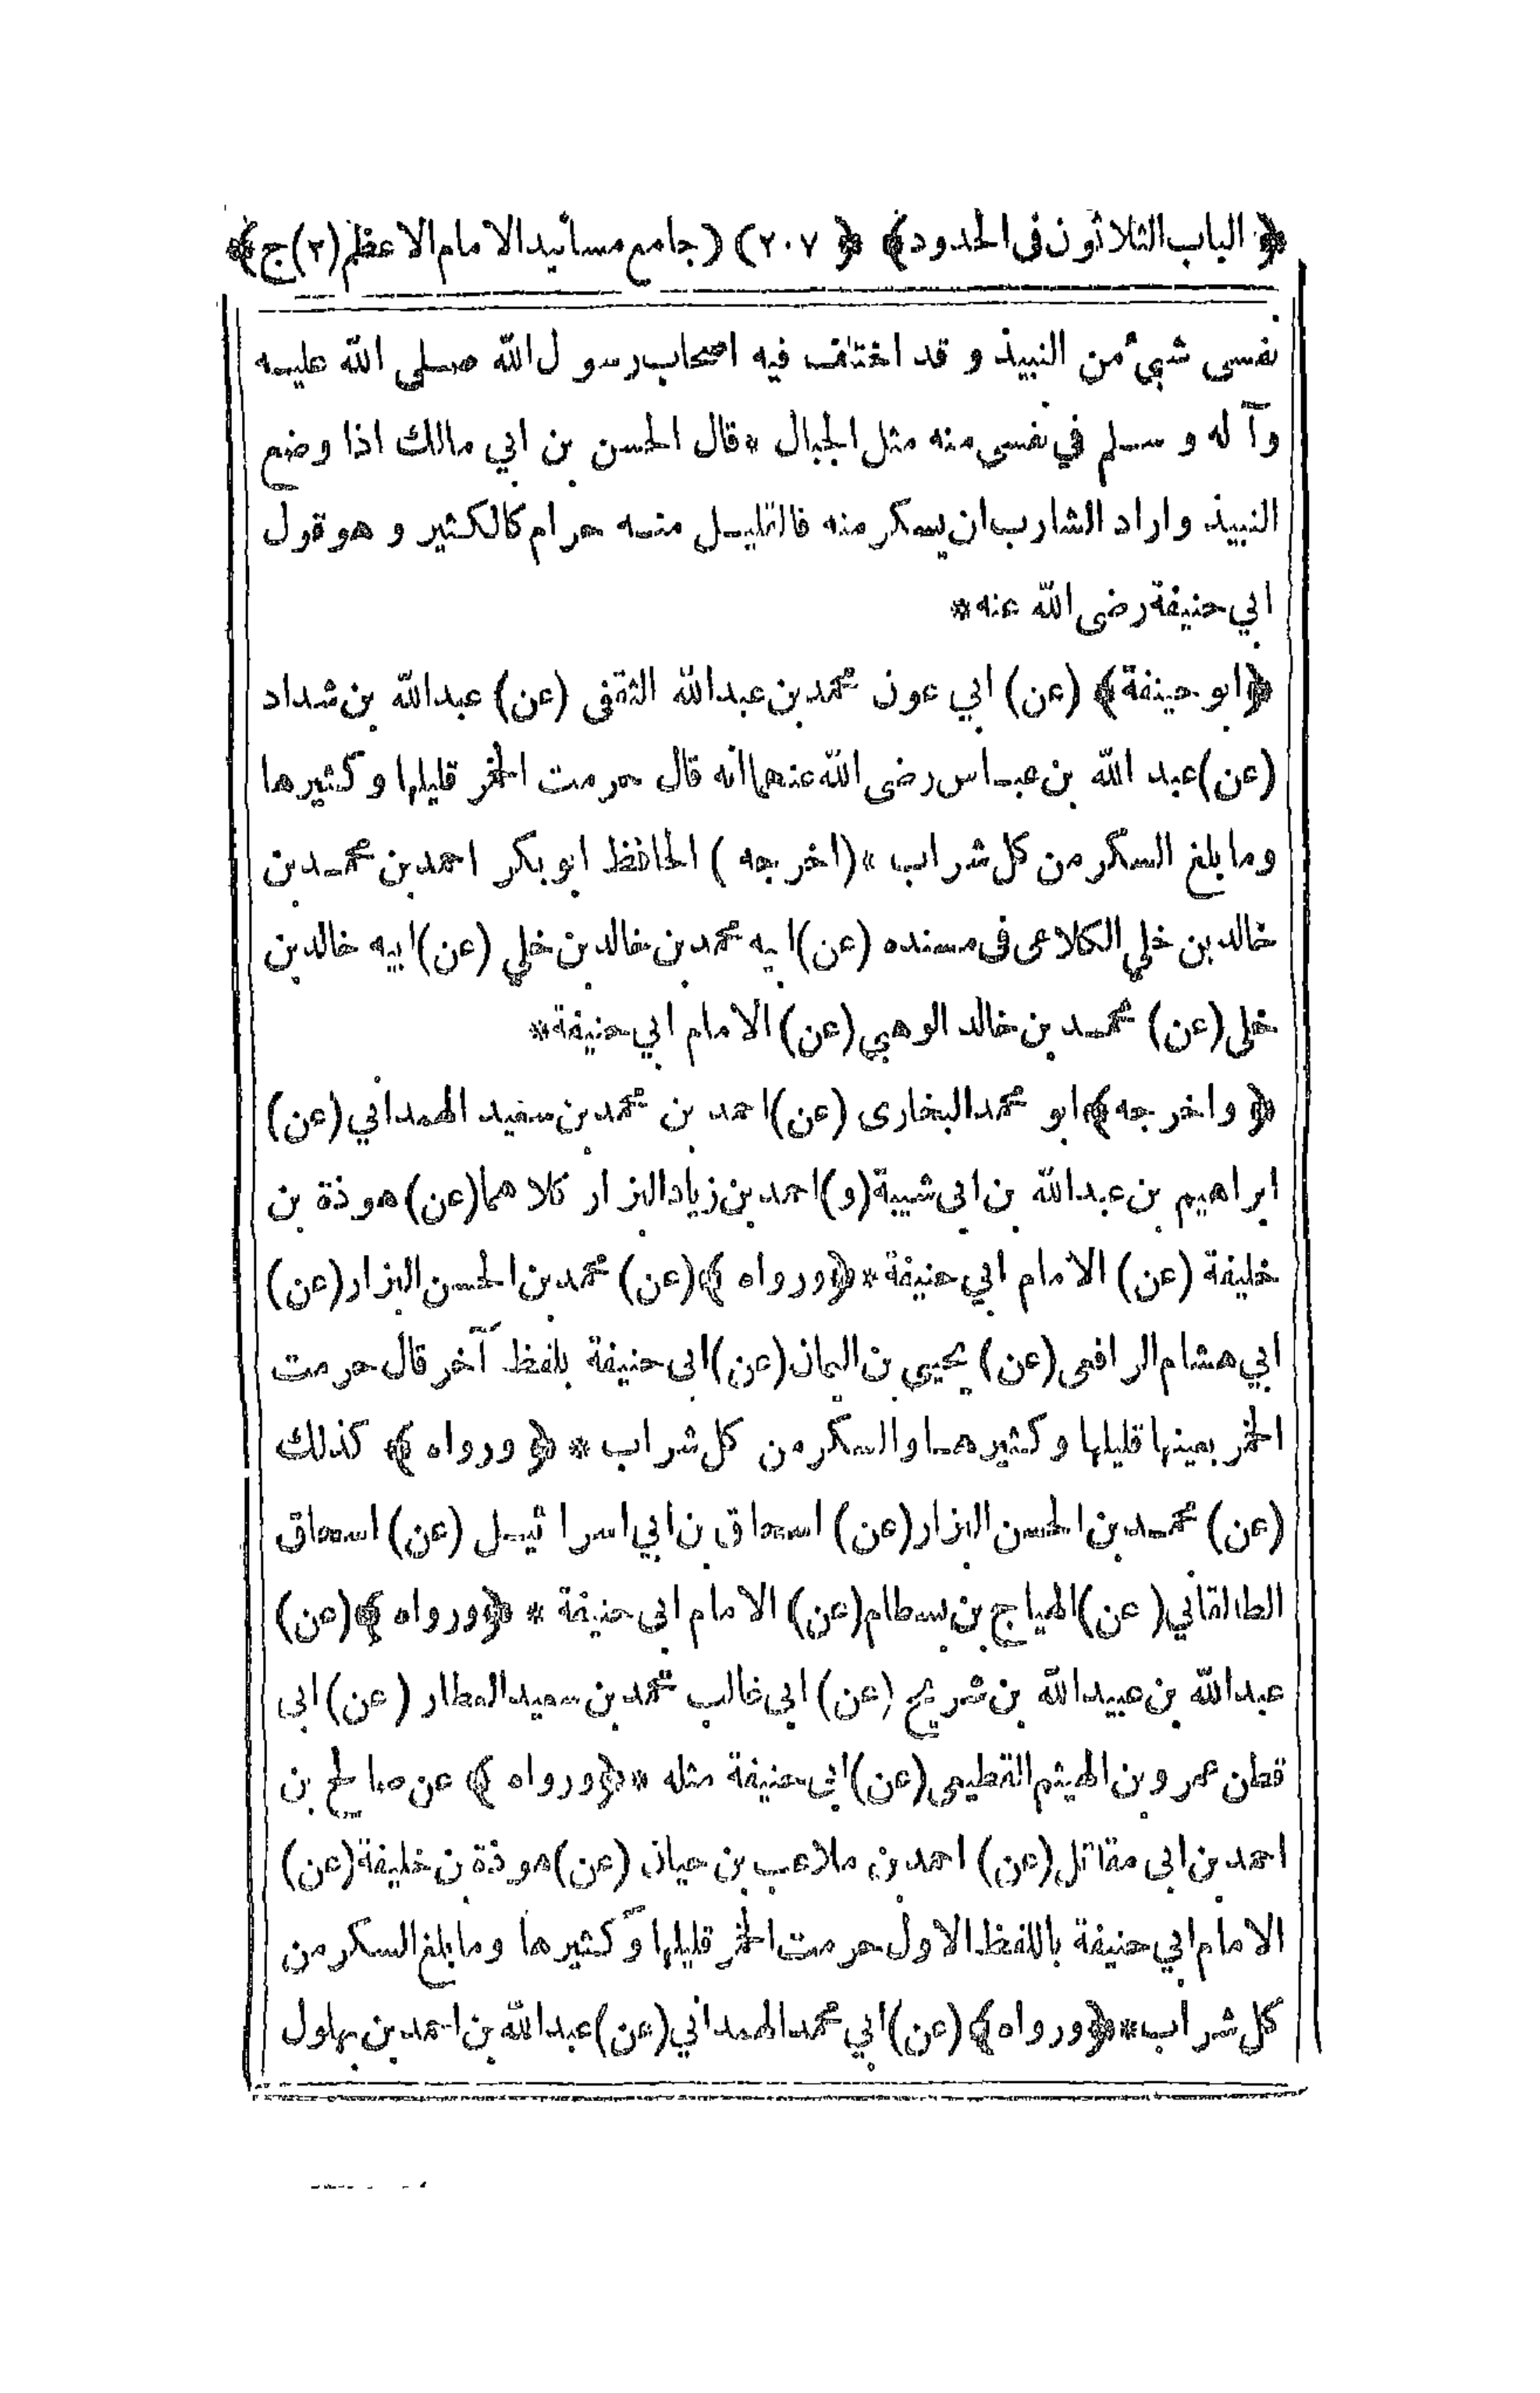 ﴿ الباب الثلاثون فى الحدود ﴾ ﴿ ٢٠٧ ) ( جامع مسانيد الامام الاعظم (٢) ج ﴾
نفسى شىٴ من النبيذ و قد اختلف فيه اصحاب رسول الله صلى الله عليه
وآله و سلم في نفسى منه مثل الجبال * قال الحسن بن ابي مالك اذا وضع
النبيذ واراد الشارب ان يسكر منه فالقليل منه حرام كالكثير و هو قول
ابي حنيفة رضى الله عنه *
﴿ ابو حنيفة ﴾ (عن) ابي عون محمد بن عبدالله الثقفى (عن) عبدالله بن شداد
(عن) عبد الله بن عباس رضى الله عنهما انه قال حرمت الخمر قليلها و كثيرها
وما بلغ السكر من كل شراب * (اخرجه ) الحافظ ابو بكر احمد بن محمد بن
خالد بن خلي الكلاعى فى مسنده (عن) ابيه محمد بن خالد بن خلي (عن) ابيه خالد بن
خلى (عن) محمد بن خالد الوهبي (عن) الامام ابي حنيفة *
﴿ واخرجه ﴾ ابو محمد البخارى (عن) احمد بن محمد بن سعيد الهمداني (عن)
ابراهيم بن عبدالله بن ابى شيبة (و) احمد بن زياد البزار كلاهما (عن) هوذة بن
خليفة (عن) الامام ابي حنيفة * ﴿ ورواه ﴾ (عن) محمد بن الحسن البزار (عن)
ابي هشام الرافعى (عن) يحيى بن اليمان (عن) ابى حنيفة بلفظ آخر قال حرمت
الخمر بعينها قليلها و كثيرها والسكر من كل شراب * ﴿ ورواه ﴾ كذلك
(عن) محمد بن الحسن البزار (عن) اسحاق بن ابي اسرائيل (عن) اسحاق
الطالقاني (عن) الهياج بن بسطام (عن) الامام ابى حنيفة * ﴿ ورواه ﴾ (عن)
عبدالله بن عبيدالله بن شريح (عن) ابى غالب محمد بن سعيد العطار (عن) ابى
قطن عمرو بن الهيثم القطيعى (عن) ابى حنيفة مثله * ﴿ ورواه ﴾ عن صالح بن
احمد بن ابى مقاتل (عن) احمد بن ملاعب بن حيان (عن) هوذة بن خليفة (عن)
الامام ابي حنيفة باللفظ الاول حرمت الخمر قليلها و كثيرها وما بلغ السكر من
كل شراب * ﴿ ورواه ﴾ (عن) ابي محمد الهمداني (عن) عبدالله بن احمد بن بهلول